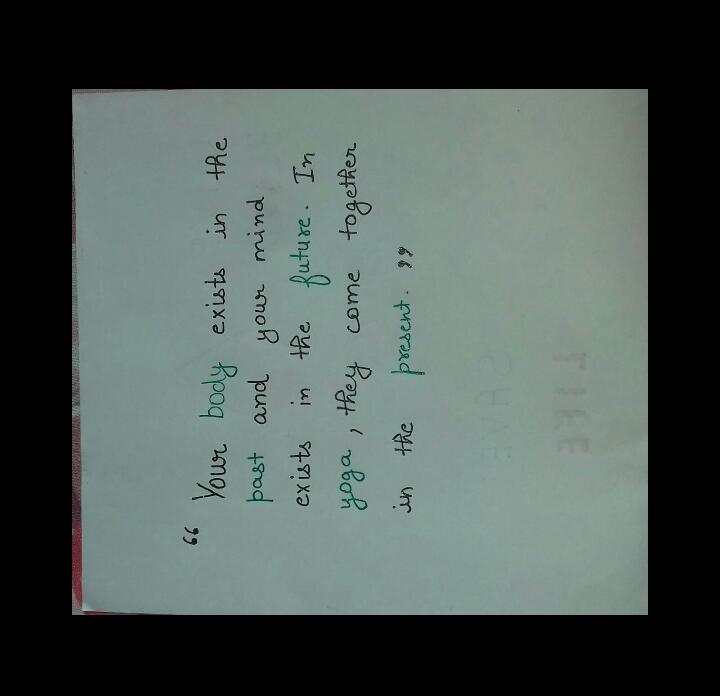 “ Your body exists in the
past and your mind
exists in the future. In
yoga, they come together
in the present. ”
SAVE
LIFE